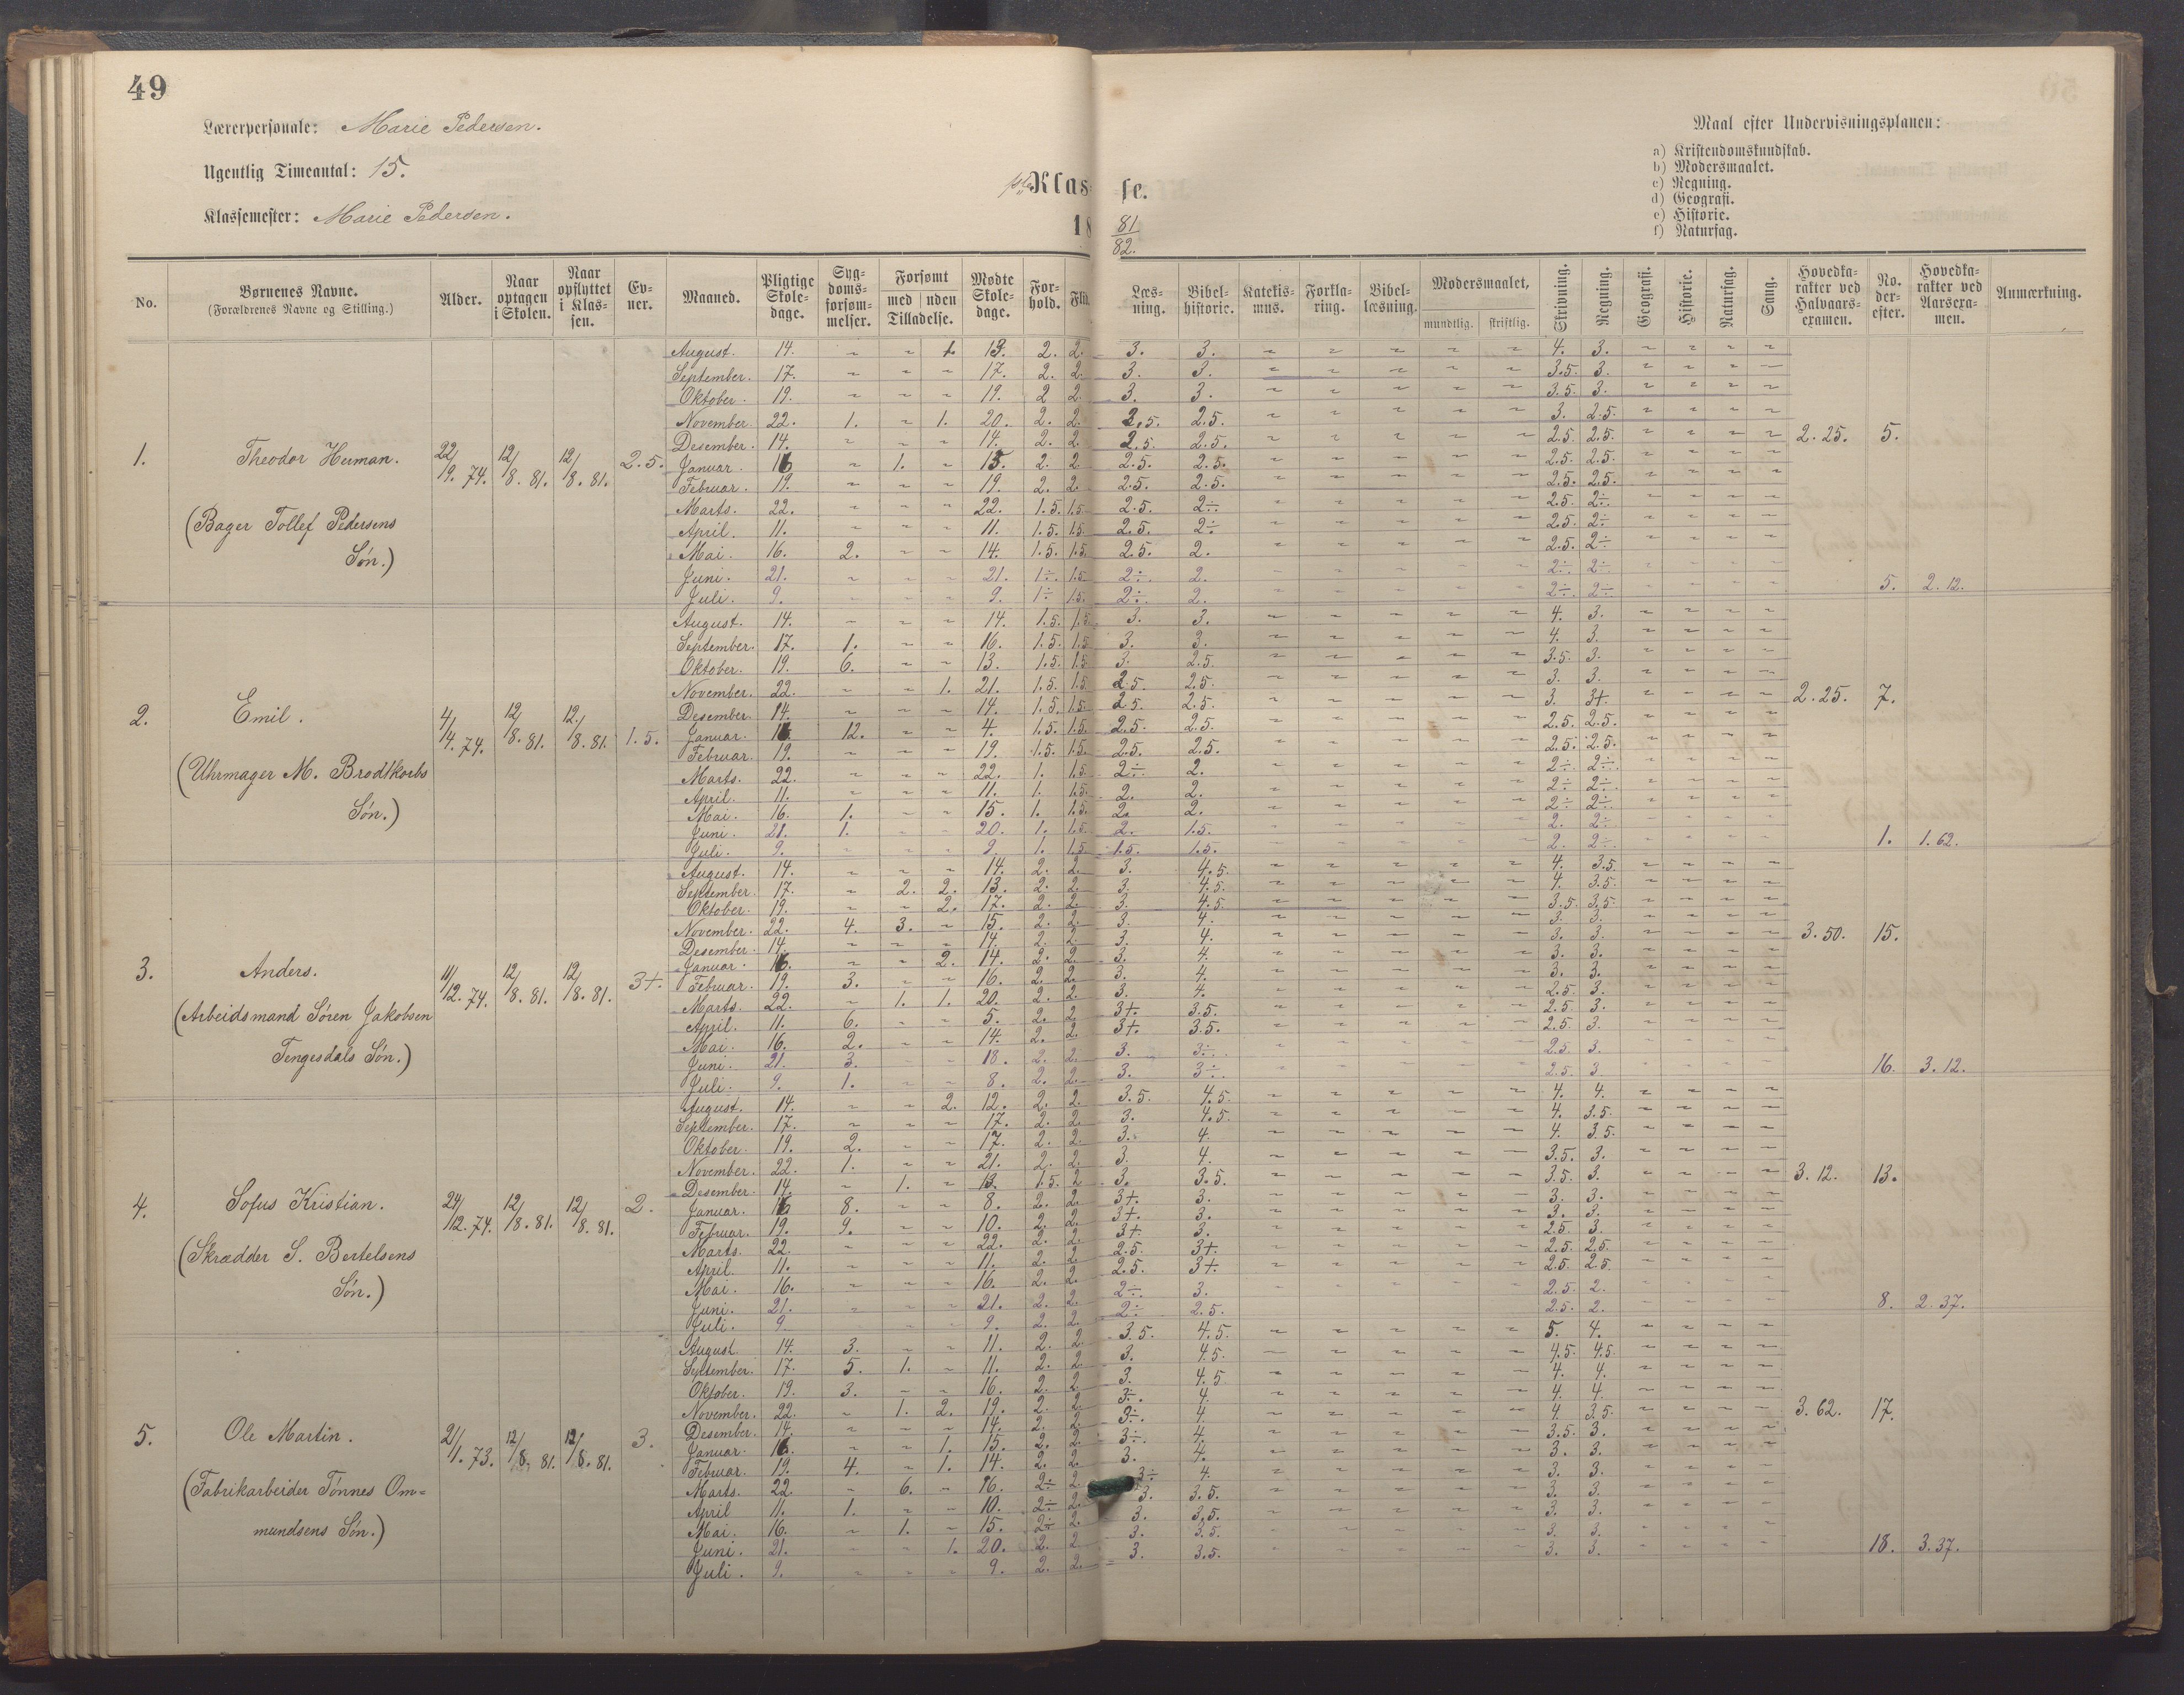 49
Lærerpersonale: Marie Pedersen.
Ugentlig Timeantal: 15.
Klassemester: Marie Pedersen.
Klasse.
18 81/82.
Maal efter Undervisningsplanen:
a) Kristendomskundskab.
b) Modersmaalet.
c) Regning.
d) Geografi.
e) Historie.
f) Naturfag.
No. Børnenes Navne. (Forældrenes Navne og Stilling.) Alder. Naar optagen i Skolen. Naar opflyttet i Klassen. Evner. Maaned. Pligtige Skoledage. Sygdomsforsømmelser. Forsømt med uden Tilladelse. Mødte Skoledage. Forhold. Flid. Læsning. Bibelhistorie. Katekismus. Forklaring. Bibellæsning. Modersmaalet, mundtlig. skriftlig. Skrivning. Regning. Geografi. Historie. Naturfag. Sang. Hovedkarakter ved Halvaarsexamen. No. derefter. Hovedkarakter ved Aarsexamen. Anmærkning.
August. 14. ~ ~ 1. 13. 2. 2. 3. 3. ~ ~ ~ ~ ~ 4. 3. ~ ~ ~ ~
September. 17. ~ ~ ~ 17. 2. 2. 3. 3. ~ ~ ~ ~ ~ 3.5. 3. ~ ~ ~ ~
Oktober. 19. ~ ~ ~ 19. 2 2. 3. 3. ~ ~ ~ ~ 3.5. 3. ~ ~ ~ ~
November. 22. 1. ~ 1. 20. 2. 2. 2.5. 2.5. ~ ~ ~ ~ ~ 3. 2.5. ~ ~ ~ ~
Desember. 14. ~ ~ ~ 14. 2. 2. 2.5 2.5. ~ ~ ~ ~ ~ 2.5. 2.5. ~ ~ ~ ~ 2.25. 5.
1. Theodor Herman. 22/19. 74. 12/8. 81. 12/8. 81. 2.5. Januar. 16 ~ 1. ~ 15. 2. 2. 2.5. 2.5. ~ ~ ~ ~ ~ 2.5. 2.5. ~ ~ ~ ~
Februar. 19. ~ ~ ~ 19. 2. 2. 2.5. 2.5. ~ ~ ~ ~ ~ 2.5. 2.5. ~ ~ ~ ~
Marts. 22. ~ ~ ~ 22. 1.5. 1.5. 2.5. 2÷. ~ ~ ~ ~ ~ 2.5. 2÷. ~ ~ ~ ~
(Bager Tollef Pedersens
April. 11. ~ ~ ~ 11. 1.5. 1.5. 2.5. 2÷ ~ ~ ~ ~ ~ 2.5. 2÷ ~ ~ ~ ~
Søn.)
Mai. 16. 2. ~ ~ 14. 1.5. 1.5. 2.5. 2. ~ ~ ~ ~ ~ 2.5. 2÷ ~ ~ ~ ~
Juni. 21. ~ ~ ~ 21. 1÷. 1.5. 2÷. 2. ~ ~ ~ ~ ~ 2÷. 2÷ ~ ~ ~ ~
Juli. 9. ~ ~ ~ 9. 1÷ 1.5. 2÷. 2. ~ ~ ~ ~ ~ 2÷. 2÷. ~ ~ ~ ~ 5. 2.12.
August. 14. ~ ~ ~ 14. 1.5. 1.5 3. 3. ~ ~ ~ ~ ~ 4. 3. ~ ~ ~ ~
September. 17. 1. ~ ~ 16. 1.5. 1.5 3. 3. ~ ~ ~ ~ ~ 4. 3. ~ ~ ~ ~
Oktober. 19. 6. ~ ~ 13. 1.5. 1.5 3. 2.5. ~ ~ ~ ~ ~ 3.5. 3. ~ ~ ~ ~
November. 22. ~ ~ 1. 21. 1.5. 1.5 2.5. 2.5. ~ ~ ~ ~ ~ 3. 3. ~ ~ ~ ~
Desember. 14. ~ ~ ~ 14. 1.5. 1.5. 2.5. 2.5. ~ ~ ~ ~ ~ 3. 3+ ~ ~ ~ ~ 2.25. 7.
2. Emil. 4/4. 74. 12/8. 81. 12/8. 81. 1.5. Januar. 16 12. ~ ~ 4. 1.5. 1.5. 2.5. 2.5. ~ ~ ~ ~ ~ 2.5. 2.5. ~ ~ ~ ~
Februar. 19. ~ ~ ~ 19. 1.5. 1.5. 2.5. 2.5. ~ ~ ~ ~ ~ 2.5. 2.5. ~ ~ ~ ~
(Uhrmager M. Brodtkorbs
Marts. 22. ~ ~ ~ 22. 1. 1.5. 2÷ 2. ~ ~ ~ ~ ~ 2÷ 2÷. ~ ~ ~ ~
April. 11. ~ ~ ~ 11. 1. 1.5. 2. 2. ~ ~ ~ ~ ~ 2÷ 2÷. ~ ~ ~ ~
Søn.)
Mai. 16. 1. ~ ~ 15. 1. 1.5. 2. 2. ~ ~ ~ ~ ~ 2÷ 2÷. ~ ~ ~ ~
Juni. 21. 1. ~ ~ 20. 1. 1.5. 2. 1.5. ~ ~ ~ ~ ~ 2. 2÷ ~ ~ ~ ~
Juli. 9. ~ ~ ~ 9. 1. 1.5. 1.5. 1.5. ~ ~ ~ ~ ~ 2. 2÷. ~ ~ ~ ~ 1. 1.62.
August. 14. ~ ~ ~ 14. 2. 2. 3. 4.5. ~ ~ ~ ~ ~ 4. 3.5. ~ ~ ~ ~
September. 17. ~ 2. 2. 13. 2. 2. 3. 4.5. ~ ~ ~ ~ ~ 4. 3.5. ~ ~ ~ ~
Oktober. 19. ~ ~ 2. 17. 2. 2. 3. 4.5. ~ ~ ~ ~ ~ 3.5. 3.5. ~ ~ ~ ~
November. 22. 4. 3. ~ 15. 2. 2. 3. 4. ~ ~ ~ ~ ~ 3. 3. ~ ~ ~ ~
Desember. 14. ~ ~ ~ 14. 2. 2 3. 4. ~ ~ ~ ~ ~ 3. 3. ~ ~ ~ ~ 3.50. 15.
3. Anders. 11/12. 74. 12/8. 81. 12/8. 81. 3+. Januar. 16. ~ ~ 2. 14. 2. 2. 3. 4. ~ ~ ~ ~ ~ 3. 3. ~ ~ ~ ~
Februar. 19. 3. ~ ~ 16. 2. 2. 3. 4. ~ ~ ~ ~ ~ 3. 3. ~ ~ ~ ~
(Arbeidsmand Søren Jakobsen
Marts. 22. ~ 1. 1. 20. 2. 2. 3. 4. ~ ~ ~ ~ ~ 2.5. 3. ~ ~ ~ ~
April. 11. 6. ~ ~ 5. 2. 2 3+. 3.5. ~ ~ ~ ~ ~ 2.5. 3. ~ ~ ~ ~
Tengesdals Søn.)
Mai. 16. 2. ~ ~ 14. 2. 2 3+. 3.5. ~ ~ ~ ~ ~ 2.5. 3. ~ ~ ~ ~
Juni. 21. 3. ~ ~ 18. 2. 2. 3. 3÷. ~ ~ ~ ~ ~ 2.5. 3. ~ ~ ~ ~
Juli. 9. 1. ~ ~ 8. 2. 2. 3. 3÷. ~ ~ ~ ~ ~ 2.5. 3. ~ ~ ~ ~ 16. 3.12.
August. 14. ~ ~ 2. 12. 2. 2. 3.5. 4.5. ~ ~ ~ ~ ~ 4. 4. ~ ~ ~ ~
September. 17. ~ ~ ~ 17. 2. 2. 3. 4.5. ~ ~ ~ ~ ~ 4. 3.5. ~ ~ ~ ~
Oktober. 19. 2. ~ ~ 17. 2. 2. 3. 4. ~ ~ ~ ~ ~ 4. 3.5. ~ ~ ~ ~
November. 22. 1. ~ ~ 21. 2. 2. 3. 4. ~ ~ ~ ~ ~ 3.5. 3. ~ ~ ~ ~
Desember. 14. ~ 1. ~ 13. 1.5. 2 3. 3.5. ~ ~ ~ ~ ~ 3.5. 3. ~ ~ ~ ~ 3.12. 13.
4. Sofus Kristian. 24/12. 74. 12/8. 81. 12/8. 81. 2. Januar. 16 8. ~ ~ 8. 2. 2. 3+. 3. ~ ~ ~ ~ ~ 3. 3. ~ ~ ~ ~
Februar. 19. 9. ~ ~ 10. 2. 2. 3+. 3. ~ ~ ~ ~ ~ 3. 3. ~ ~ ~ ~
(Skrædder S. Bertelsens
Marts. 22. ~ ~ ~ 22. 2. 2. 3+. 3. ~ ~ ~ ~ ~ 2.5. 3. ~ ~ ~ ~
April. 11. ~ ~ ~ 11. 2. 2. 2.5. 3+. ~ ~ ~ ~ ~ 2.5. 2.5. ~ ~ ~ ~
Søn.)
Mai. 16. ~ ~ ~ 16. 2. 2. 2.5. 3+. ~ ~ ~ ~ ~ 2.5. 2.5. ~ ~ ~ ~
Juni. 21. ~ ~ ~ 21. 2. 2. 2÷. 3. ~ ~ ~ ~ ~ 2.5. 2. ~ ~ ~ ~
Juli. 9. ~ ~ ~ 9. 2. 2. 2÷ 2.5. ~ ~ ~ ~ ~ 2.5. 2. ~ ~ ~ ~ 8. 2.37.
August 14. 3. ~ ~ 11. 2. 2. 3.5. 4.5. ~ ~ ~ ~ ~ 5. 4. ~ ~ ~ ~
September. 17. 5. 1. ~ 11. 2. 2. 3. 4.5. ~ ~ ~ ~ ~ 4.5. 4.5. ~ ~ ~ ~
Oktober. 19. 3. ~ ~ 16. 2. 2. 3. 4.5 ~ ~ ~ ~ ~ 4. 4. ~ ~ ~ ~
November. 22. ~ 1. 2. 19. 2. 2. 3÷. 4. ~ ~ ~ ~ ~ 4. 4. ~ ~ ~ ~
Desember. 14. ~ ~ ~ 14. 2. 2. 3÷. 4. ~ ~ ~ ~ ~ 4. 3.5. ~ ~ ~ ~ 3.62. 17.
5. Ole Martin. 21/1. 73. 12/8. 81. 12/8. 81. 3. Januar. 16. ~ ~ 1. 15. 2. 2. 3÷. 4. ~ ~ ~ ~ ~ 3.5. 3. ~ ~ ~ ~
Februar. 19. 4. ~ 1. 14. 2. 2. 3. 4. ~ ~ ~ ~ ~ 3. 3. ~ ~ ~ ~
(Fabrikarbeider Tønnes Om=
Marts. 22. ~ 6. ~ 16. 2÷ 2. 3÷ 4. ~ ~ ~ ~ ~ 3. 3. ~ ~ ~ ~
April 11. 1. ~ ~ 10. 2÷ 2. 3. 3.5. ~ ~ ~ ~ ~ 3. 3. ~ ~ ~ ~
mundsens Søn.)
Mai. 16. ~ 1. ~ 15. 2÷ 2. 3. 3.5. ~ ~ ~ ~ ~ 3. 3. ~ ~ ~ ~
Juni. 21. ~ ~ 1. 20. 2. 2. 3. 3.5. ~ ~ ~ ~ ~ 3. 3. ~ ~ ~ ~
Juli. 9. ~ ~ ~ 9. 2. 2. 3. 3.5. ~ ~ ~ ~ ~ 3. 3. ~ ~ ~ ~ 18. 3.37.